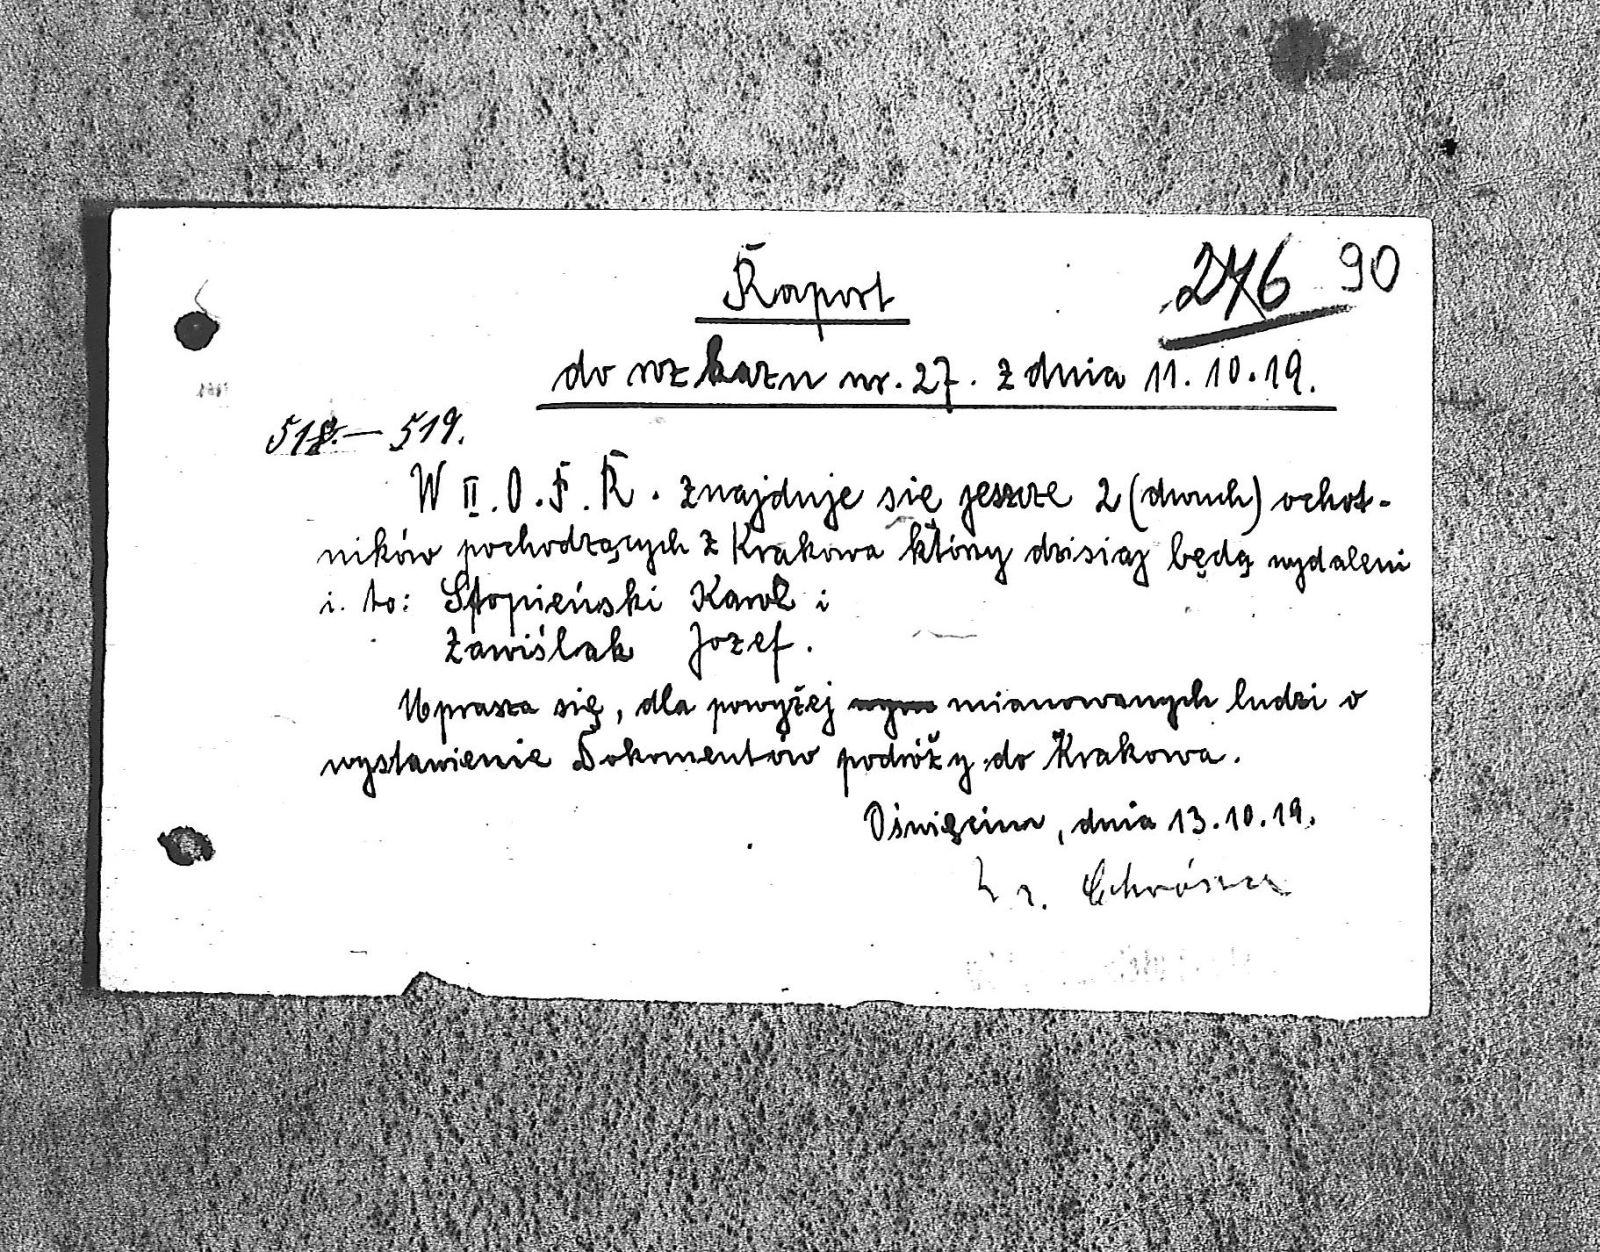 276 90
Raport
do rozkazu nr. 27. z dnia 11.10.19.
518. — 519.
W II. O. F. R. znajduje się jeszcze 2 (dwuch) ochot-
ników pochodzących z Krakowa który dzisiaj będą wydaleni
i. to: Stopieński Karol i
Zawiślak Jozef.
Uprasza się, dla powyżej mianowanych ludzi o
wystawienie Dokomentów podróży do Krakowa.
Oświęcim, dnia 13.10.19.